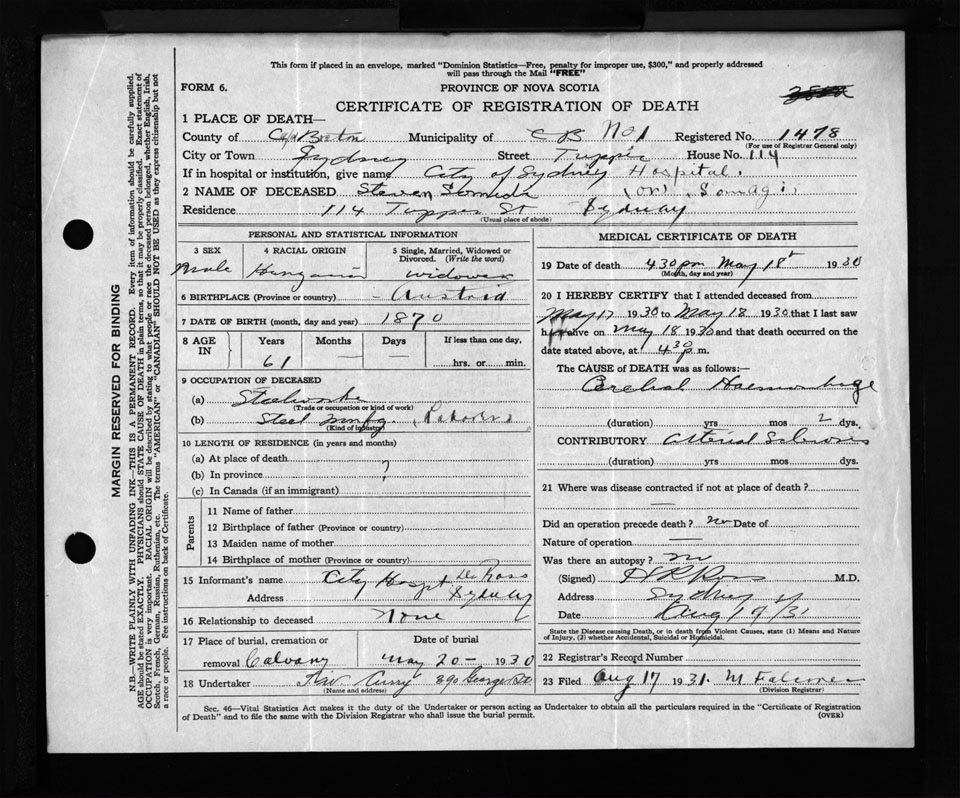 This form if placed in an envelope, marked "Dominion Statistics—Free, penalty for improper use, $300," and properly addressed
will pass through the Mail "FREE"
FORM 6. PROVINCE OF NOVA SCOTIA
CERTIFICATE OF REGISTRATION OF DEATH
1 PLACE OF DEATH—
County of Cape Breton Municipality of C B No 1 Registered No. 1478
(For use of Registrar General only)
City or Town Sydney Street Tupper House No. 114
If in hospital or institution, give name City of Sydney Hospital.
2 NAME OF DECEASED Steven (or)
Residence 114 Tupper St Sydney
(Usual place of abode)
PERSONAL AND STATISTICAL INFORMATION
3 SEX 4 RACIAL ORIGIN 5 Single, Married, Widowed or
Divorced. (Write the word)
Male Hungarian widower
6 BIRTHPLACE (Province or country) Austria
7 DATE OF BIRTH (month, day and year) 1870
8 AGE IN Years Months Days If less than one day,
61 — — hrs. or min.
9 OCCUPATION OF DECEASED
(a) Steelworker
(Trade or occupation or kind of work)
(b) Steel mnfg.
(Kind of industry)
10 LENGTH OF RESIDENCE (in years and months)
(a) At place of death
(b) In province ?
(c) In Canada (if an immigrant)
Parents
11 Name of father
12 Birthplace of father (Province or country)
13 Maiden name of mother
14 Birthplace of mother (Province or country)
15 Informant's name City Hospt Dr Ross
Address Sydney
16 Relationship to deceased None
17 Place of burial, cremation or Date of burial
removal Calvary May 20 - 1930
18 Undertaker Curry 290 George St
(Name and address)
MEDICAL CERTIFICATE OF DEATH
19 Date of death 4.30 pm May 18 1930
(Month, day and year)
20 I HEREBY CERTIFY that I attended deceased from
May 17 1930 to May 18 1930 that I last saw
h alive on May 18 1930 and that death occurred on the
date stated above, at 4 30 p m.
The CAUSE of DEATH was as follows:—
Cerebral Haemorrhage
(duration) yrs mos 2 dys.
CONTRIBUTORY Arterial Sclerosis
(duration) yrs mos dys.
21 Where was disease contracted if not at place of death?
—
Did an operation precede death? no Date of
Nature of operation —
Was there an autopsy? no
(Signed) Ross M.D.
Address Sydney
Date Aug 17/31
State the Disease causing Death, or in death from Violent Causes, state (1) Means and Nature
of Injury, (2) whether Accidental, Suicidal or Homicidal.
22 Registrar's Record Number
23 Filed Aug 17 1931. M Falconer
(Division Registrar)
Sec. 46—Vital Statistics Act makes it the duty of the Undertaker or person acting as Undertaker to obtain all the particulars required in the "Certificate of Registration
of Death" and to file the same with the Division Registrar who shall issue the burial permit. (OVER)
MARGIN RESERVED FOR BINDING
N.B.—WRITE PLAINLY WITH UNFADING INK—THIS IS A PERMANENT RECORD. Every item of information should be carefully supplied.
AGE should be stated EXACTLY. PHYSICIANS should STATE CAUSE OF DEATH in plain terms, so that it may be properly classified. Exact statement of
OCCUPATION is very important. RACIAL ORIGIN will be described by stating to what people or race the deceased person belonged, whether English, Irish,
Scotch, French, German, Russian, Ruthenian, etc. The terms "AMERICAN" or "CANADIAN" SHOULD NOT BE USED as they express citizenship but not
a race or people. See instructions on back of Certificate.